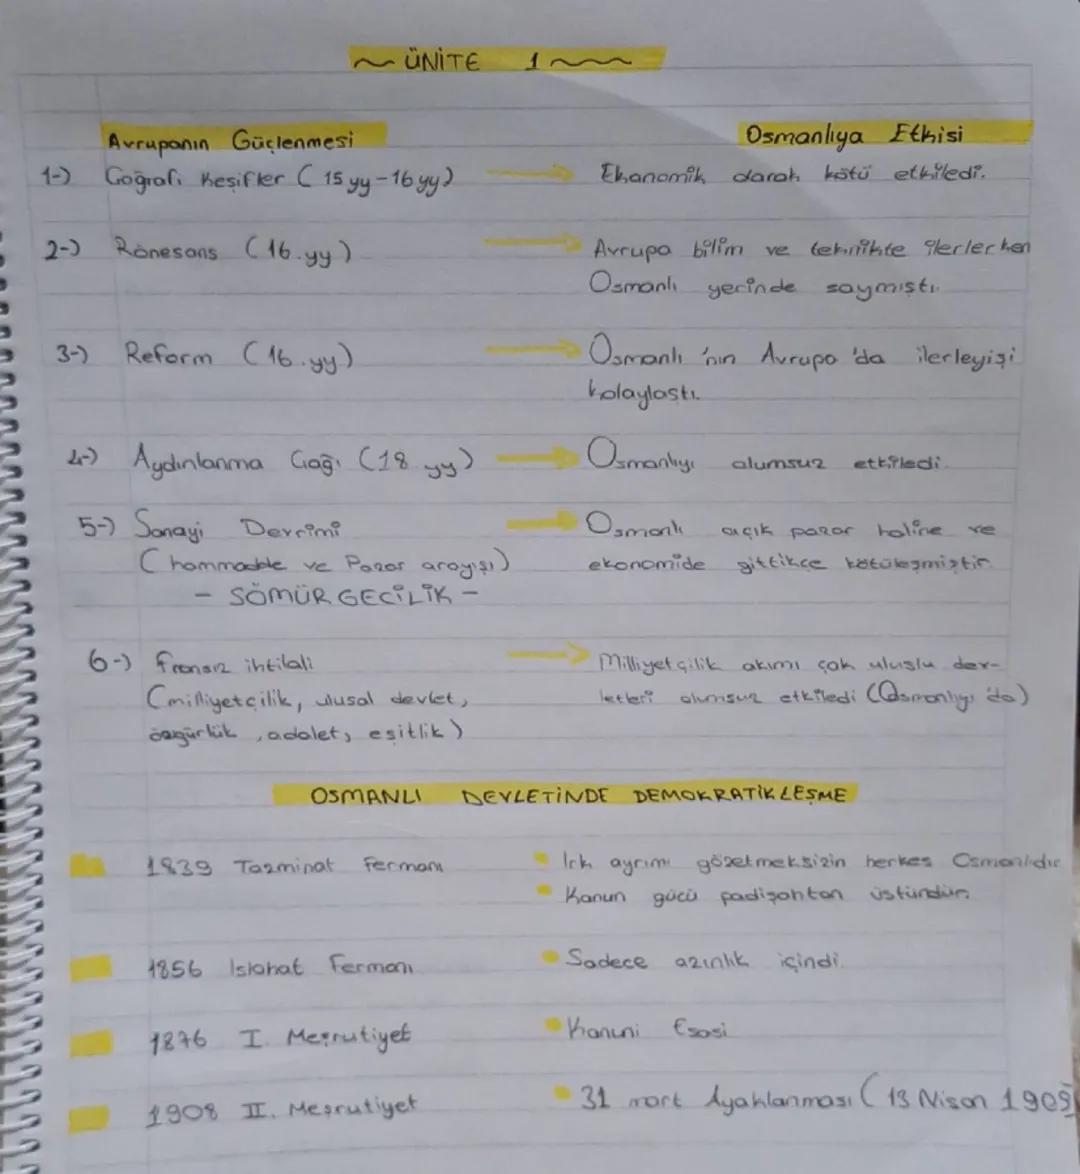 ~ ÜNİTE 1 ~
Avrupanın Güçlenmesi
Osmanlıya Etkisi
1-) Coğrafi Keşifler (15 yy-16 yy) → Ekonomik olarak kötü etkiledi.
2-) Rönesans (16.yy) → Avrupa bilim ve teknikte ilerlerken
Osmanlı yerinde saymıştı.
3-) Reform (16.yy) → Osmanlı'nın Avrupa'da ilerleyişi
kolaylaştı.
4-) Aydınlanma Çağı (18 yy) → Osmanlıyı olumsuz etkiledi.
5-) Sanayi Devrimi → Osmanlı açık pazar haline ve
(hammadde ve Pazar arayışı) ekonomide gittikçe kötüleşmiştir.
- SÖMÜRGECİLİK -
6-) Fransız ihtilali → Milliyetçilik akımı çok uluslu dev-
(milliyetçilik, ulusal devlet, letleri olumsuz etkiledi (Osmanlıyı'da)
özgürlük, adalet, eşitlik)
OSMANLI DEVLETİNDE DEMOKRATİKLEŞME
1839 Tazminat Fermanı • Irk ayrımı gözetmeksizin herkes Osmanlıdır
• Kanun gücü padişahtan üstündür.
1856 Islahat Fermanı • Sadece azınlık içindi.
1876 I. Meşrutiyet • Kanuni Esasi
1908 II. Meşrutiyet • 31 mart Ayaklanması (13 Nisan 1909)